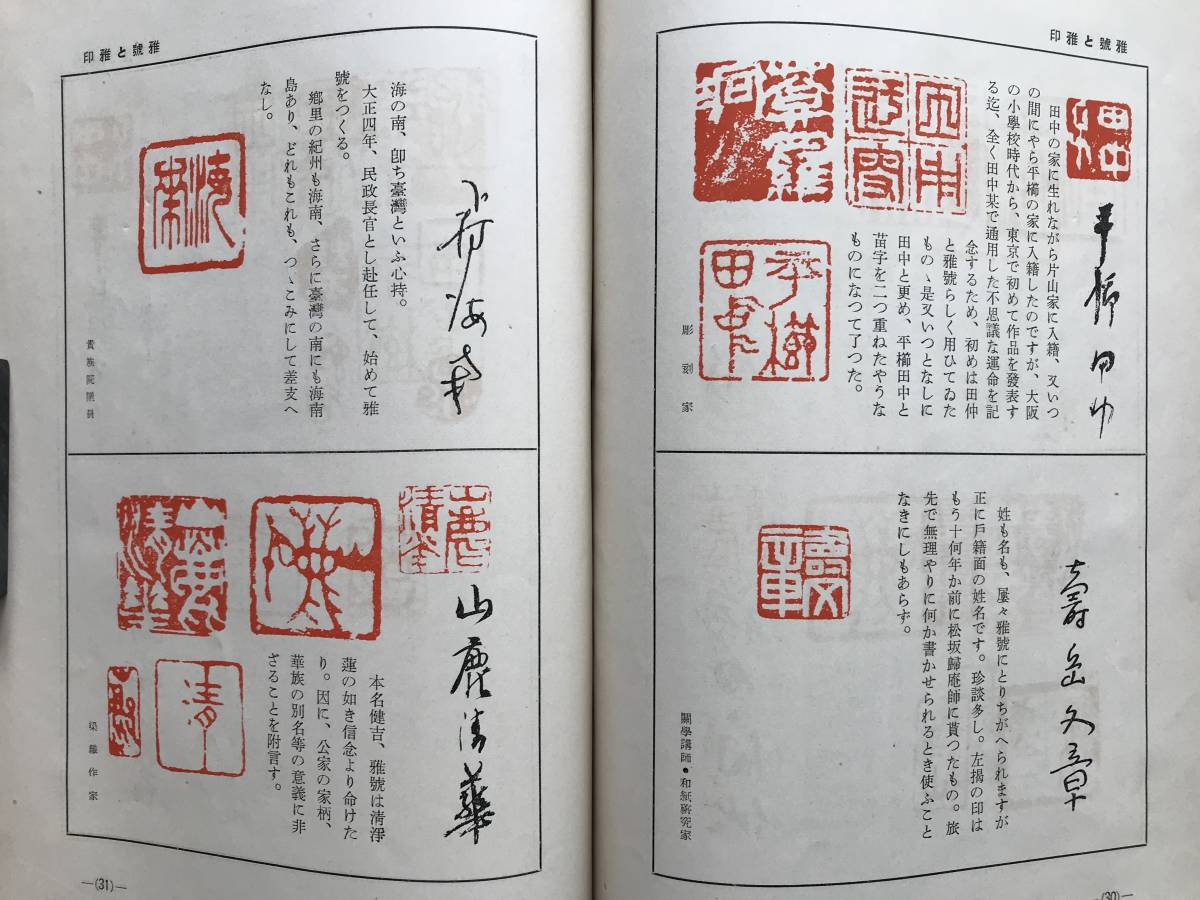 雅號と雅印
平櫛田中
田中の家に生れながら片山家に入籍、又いつ
の間にやら平櫛の家に入籍したのですが、大阪
の小學校時代から、東京で初めて作品を發表す
る迄、全く田中某で通用した不思議な運命を記
念するため、初めは田仲
と雅號らしく用ひてゐた
ものゝ是又いつとなしに
田中と更め、平櫛田中と
苗字を二つ重ねたやうな
ものになつて了つた。
彫刻家
田中
平櫛
田中
壽岳文章
姓も名も、屢々雅號にとりちがへられますが
正に戶籍面の姓名です。珍談多し。左揭の印は
もう十何年か前に松坂歸庵師に貰つたもの。旅
先で無理やりに何か書かせられるとき使ふこと
なきにしもあらず。
關學講師・和紙硏究家
文章
―(30)―
雅號と雅印
下村海南
海の南、卽ち臺灣といふ心持。
大正四年、民政長官とし赴任して、始めて雅
號をつくる。
鄕里の紀州も海南、さらに臺灣の南にも海南
島あり、どれもこれも、つゝこみにして差支へ
なし。
貴族院議員
海南
山鹿清華
本名健吉、雅號は淸淨
蓮の如き信念より命けた
り。因に、公家の家柄、
華族の別名等の意義に非
ざることを附言す。
染織作家
山鹿
清華
清
―(31)―